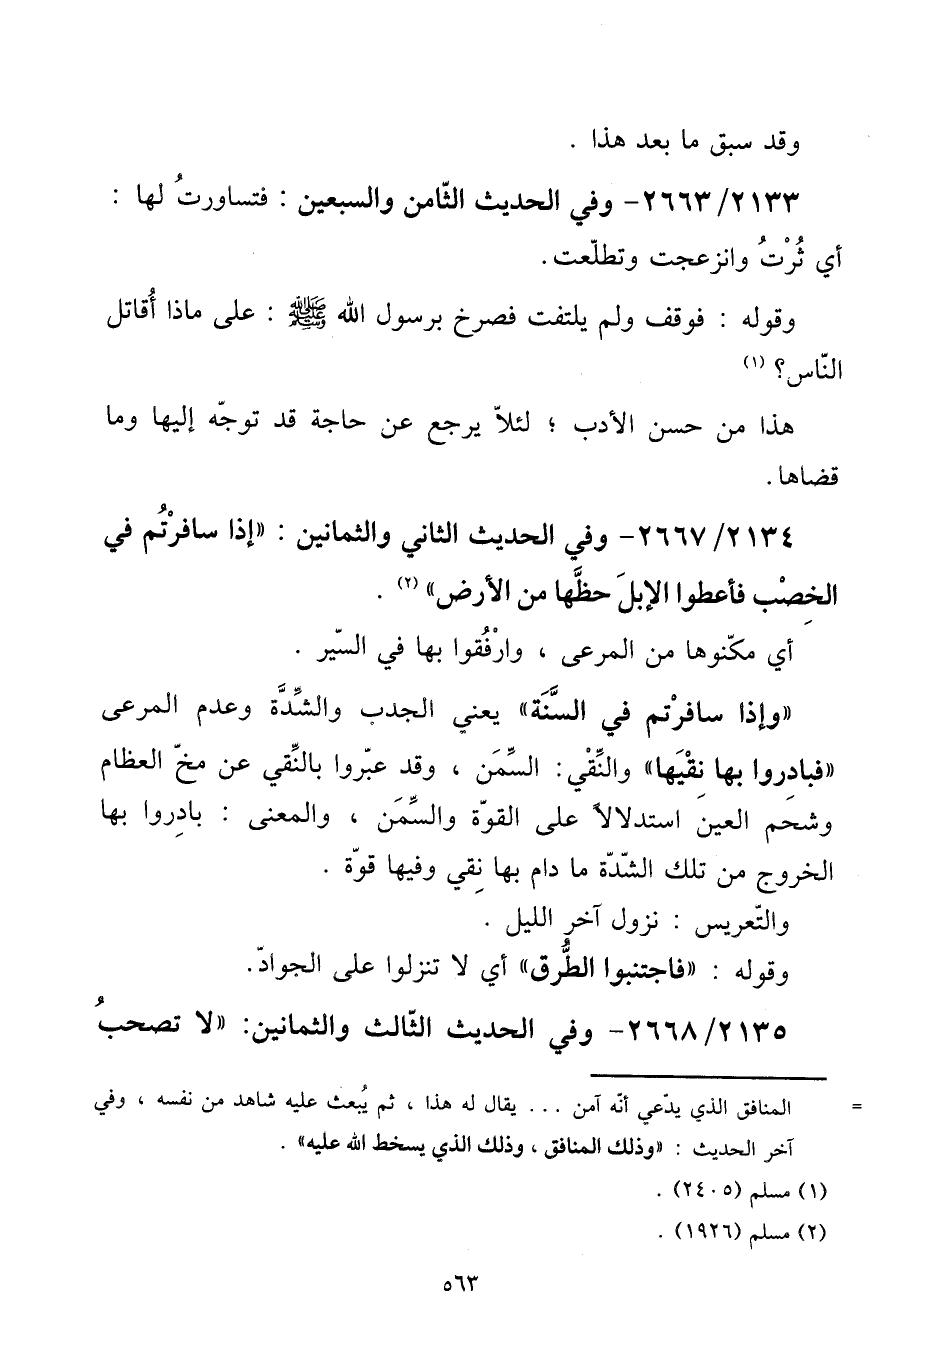 وقد سبق ما بعد هذا .
٢٦٦٣/٢١٣٣- وفي الحديث الثّامن والسبعين : فتساورتُ لها :
أي ثُرْتُ وانزعجت وتطلّعت .
وقوله : فوقف ولم يلتفت فصرخ برسول الله ﷺ : على ماذا أُقاتل
النّاس؟ (١)
هذا من حسن الأدب ؛ لئلاّ يرجع عن حاجة قد توجّه إليها وما
قضاها .
٢٦٦٧/٢١٣٤- وفي الحديث الثاني والثمانين : «إذا سافرْتُم في
الخِصْب فأعطوا الإبلَ حظَّها من الأرض» (٢) .
أي مكّنوها من المرعى ، وارْفُقوا بها في السّير .
«وإذا سافرْتم في السَّنَة» يعني الجدب والشِّدَّة وعدم المرعى
«فبادِروا بها نِقْيَها» والنِّقْي: السِّمَن ، وقد عبّروا بالنِّقي عن مخّ العظام
وشحم العين استدلالاً على القوّة والسِّمَن ، والمعنى : بادِروا بها
الخروج من تلك الشّدّة ما دام بها نِقي وفيها قوّة .
والتّعريس : نزول آخر الليل .
وقوله : «فاجتنبوا الطُّرق» أي لا تنزلوا على الجوادّ.
٢٦٦٨/٢١٣٥- وفي الحديث الثّالث والثمانين: «لا تصحبُ
= المنافق الذي يدّعي أنّه آمن ... يقال له هذا ، ثم يُبعث عليه شاهد من نفسه ، وفي
آخر الحديث : «وذلك المنافق ، وذلك الذي يسخط الله عليه» .
(١) مسلم (٢٤٠٥) .
(٢) مسلم (١٩٢٦) .
٥٦٣